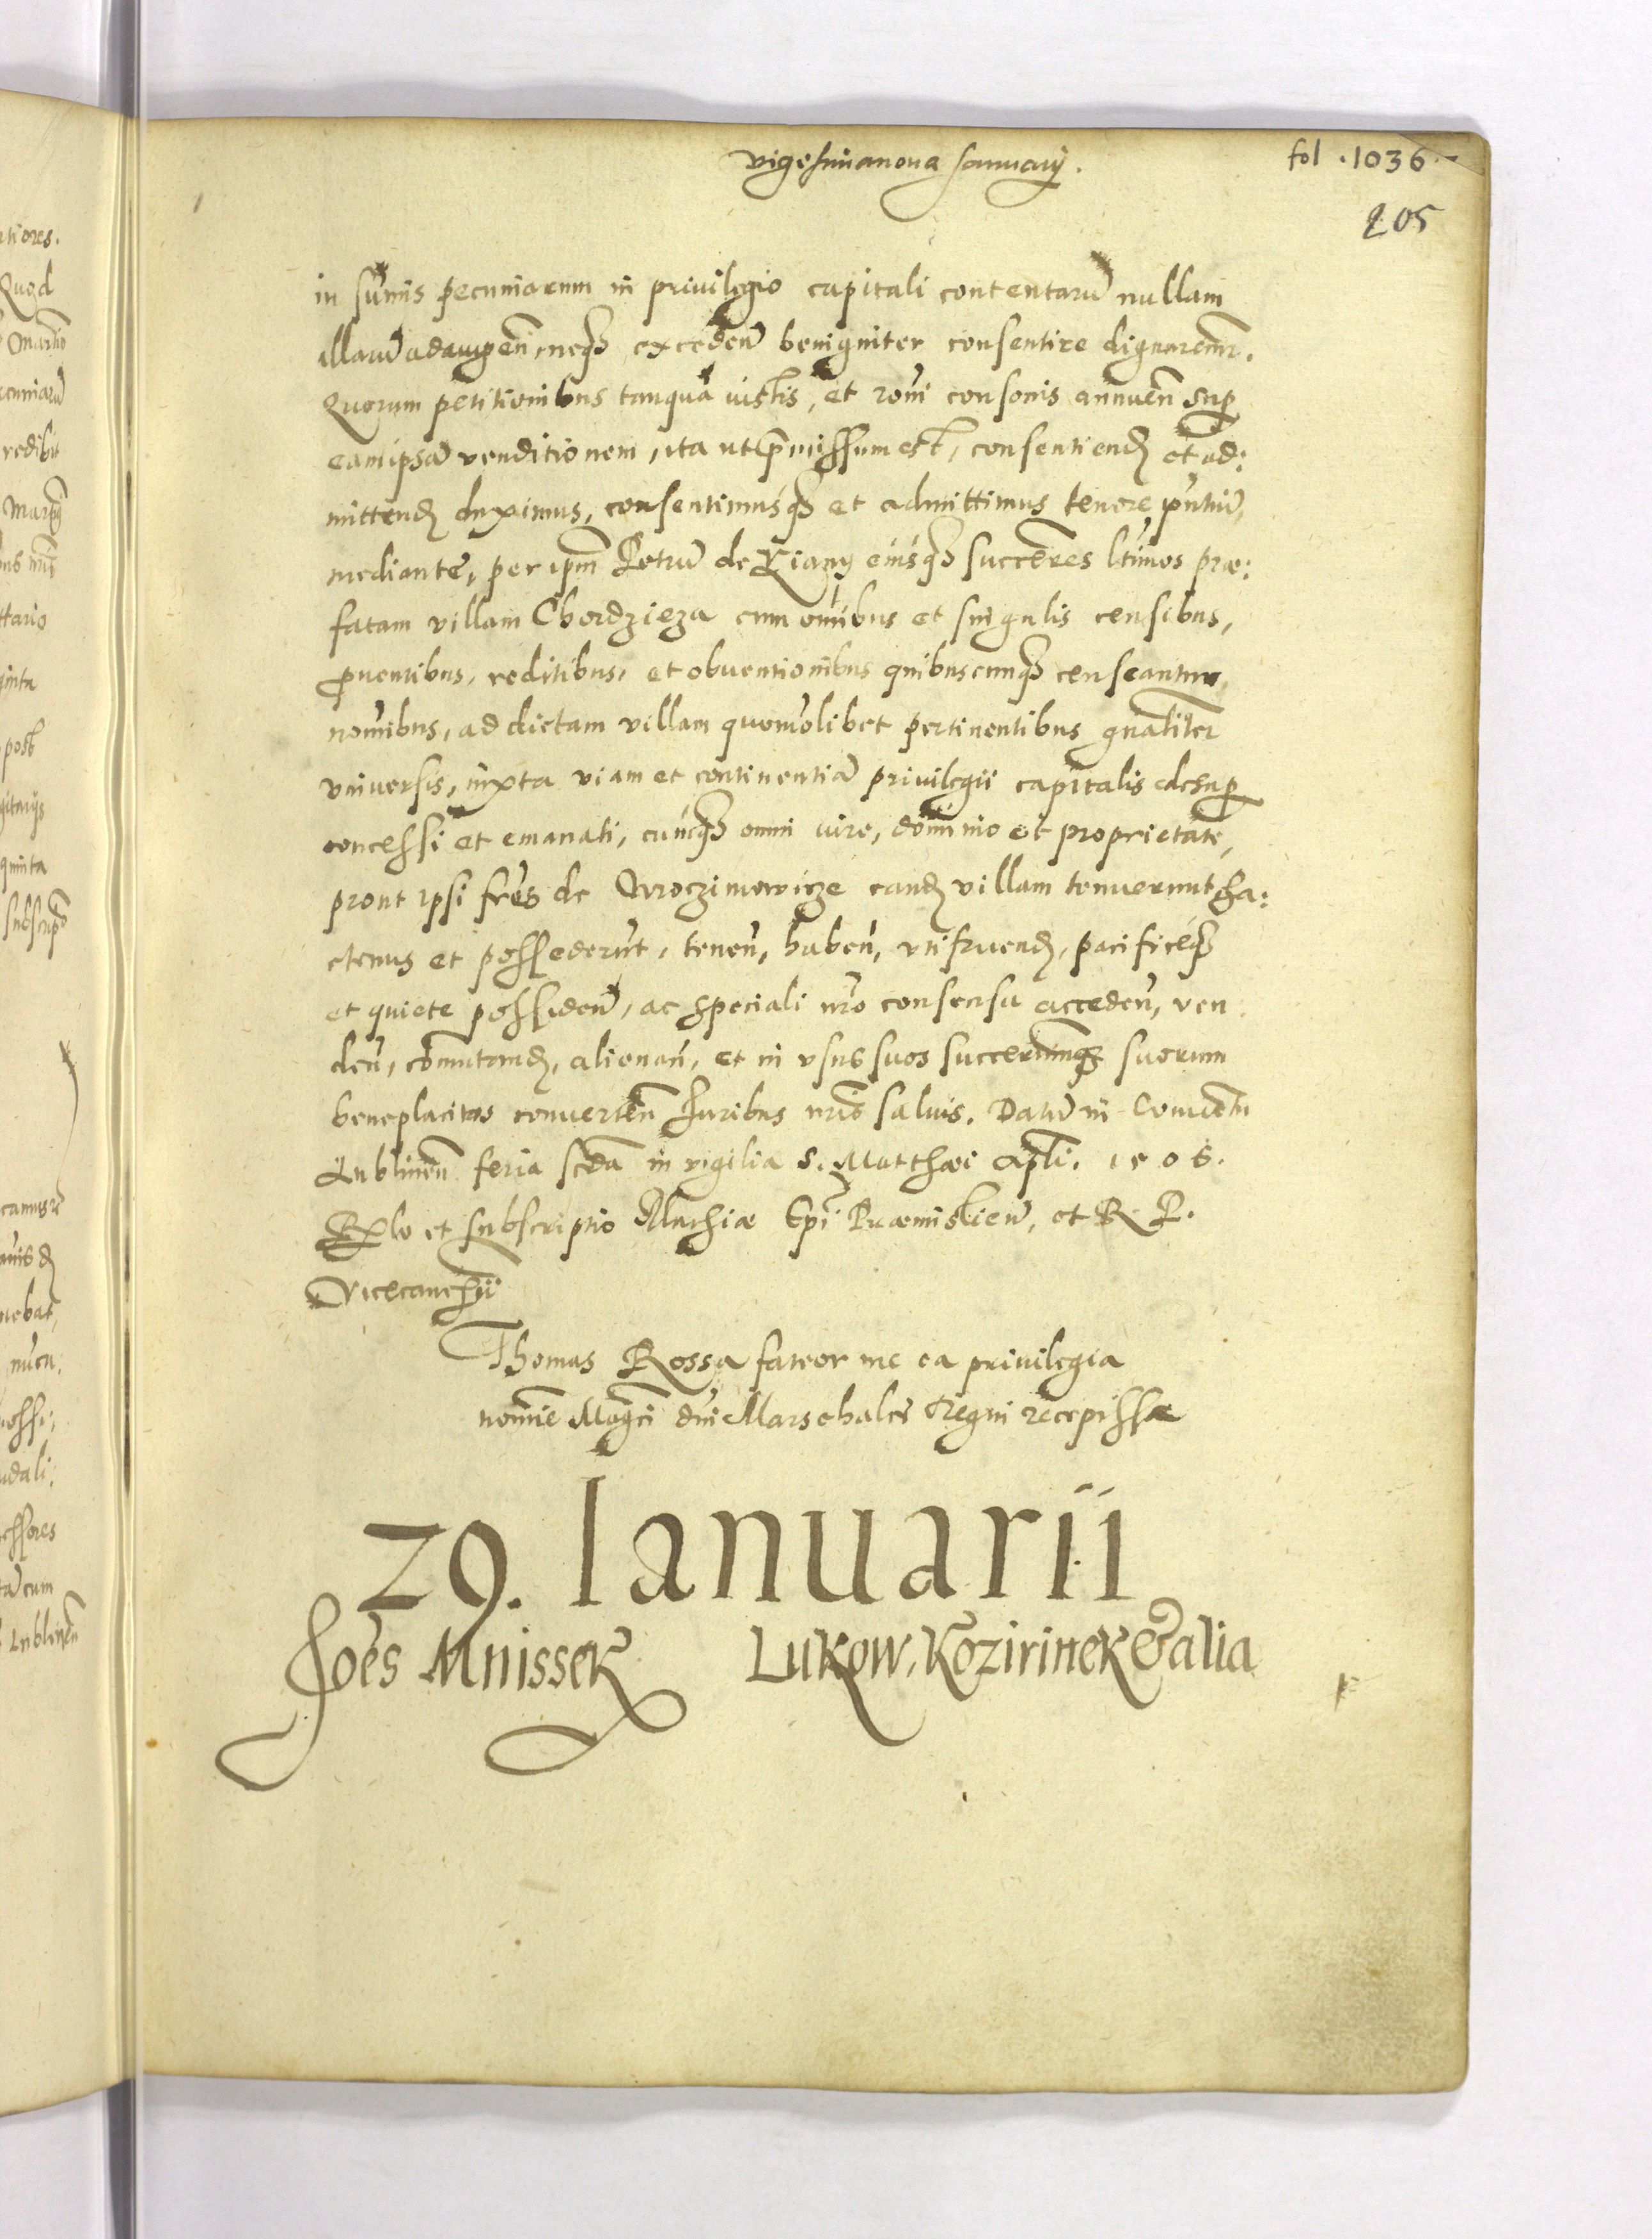 vigesimanona Januarij.
fol .1036.
205
in sum̃is pecuniarum in privilegio capitali contentarũ nullam
illarũ adaugeñ, neqꝫ excedeñ benigniter consentire dignaremur.
Quorum petitionibus tanquã iustis, et rõni consonis annuen̄ sup
eam ipsã venditionem, ita ut p̄missum est, consentiend̄ et ad:
mittend̄ duximus, consentimusqꝫ et admittimus tenore pn̄tiũ,
mediante, per ipm̄ Petrũ de Kiany eiusqꝫ succe͞res l͞timos præ:
fatam villam Chordzieza cum om̃ibus et singulis censibus,
ꝓuentibus, reditibus, et obuentionibus quibuscunqꝫ censeantur
nom̃ibus, ad dictam villam quom̃olibet pertinentibus gn̄aliter
vniuersis, iuxta viam et continentiã privilegii capitalis desup
concessi et emanati, cum̃qꝫ omni iure, dominio et proprietate,
prout ipsi fr̃es de Mroczimowicze eand̄ villam tenuerunt ha:
ctenus et possederũt, teneñ, habeñ, vtifruend̄, pacificeqꝫ
et quiete possideñ, ac speciali nr̃o consensu accedeñ, ven
deñ, com̃utand̄, alienañ, et in vsus suos succe͞rumqꝫ suorum
beneplacitos conuerteñ Juribus nr̃is saluis. Datũ in Conuentu
Lublineñ feria scda in vigilia S. Matthæi apl̃i. 1506.
R͞elo et subscriptio Mathiæ Ep̃i Præmislieñ, et R. P.
Vicecanc͞rii
Thomas Rossa fateor me ea privilegia
nomĩe Mag͞ci dñi Marschalci Regni recepisse
29. Ianuarii
Joẽs Mnissek Lukow, Kozirinek & alia